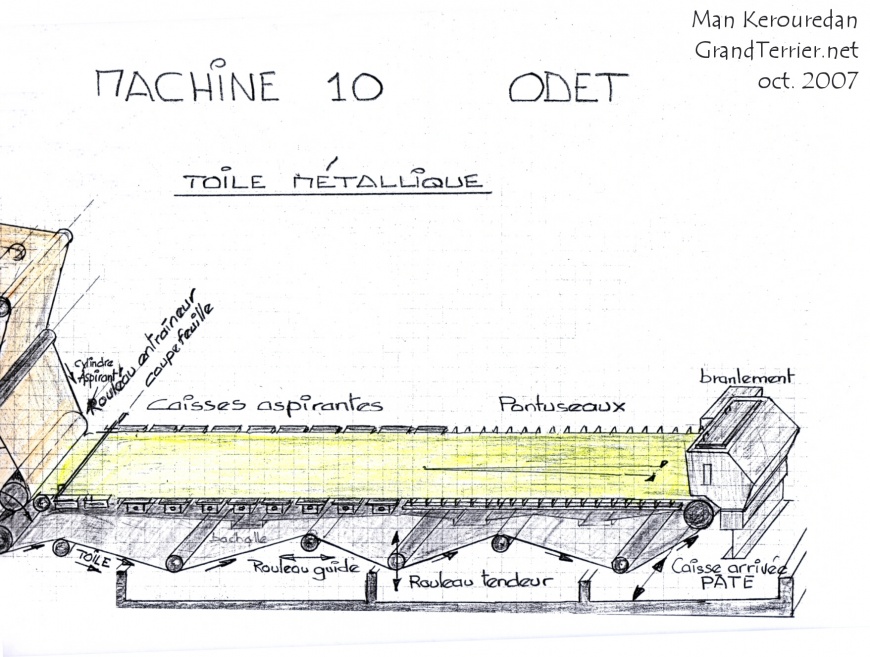 Man Kerouredan
GrandTerrier.net
oct. 2007
MACHINE 10 ODET
TOILE MÉTALLIQUE
cylindre
Aspirant
Rouleau entraineur
coupe feuille
Caisses aspirantes
Pontuseaux
branlement
bachalle
TOILE
Rouleau guide
Rouleau tendeur
Caisse arrivée
PATE